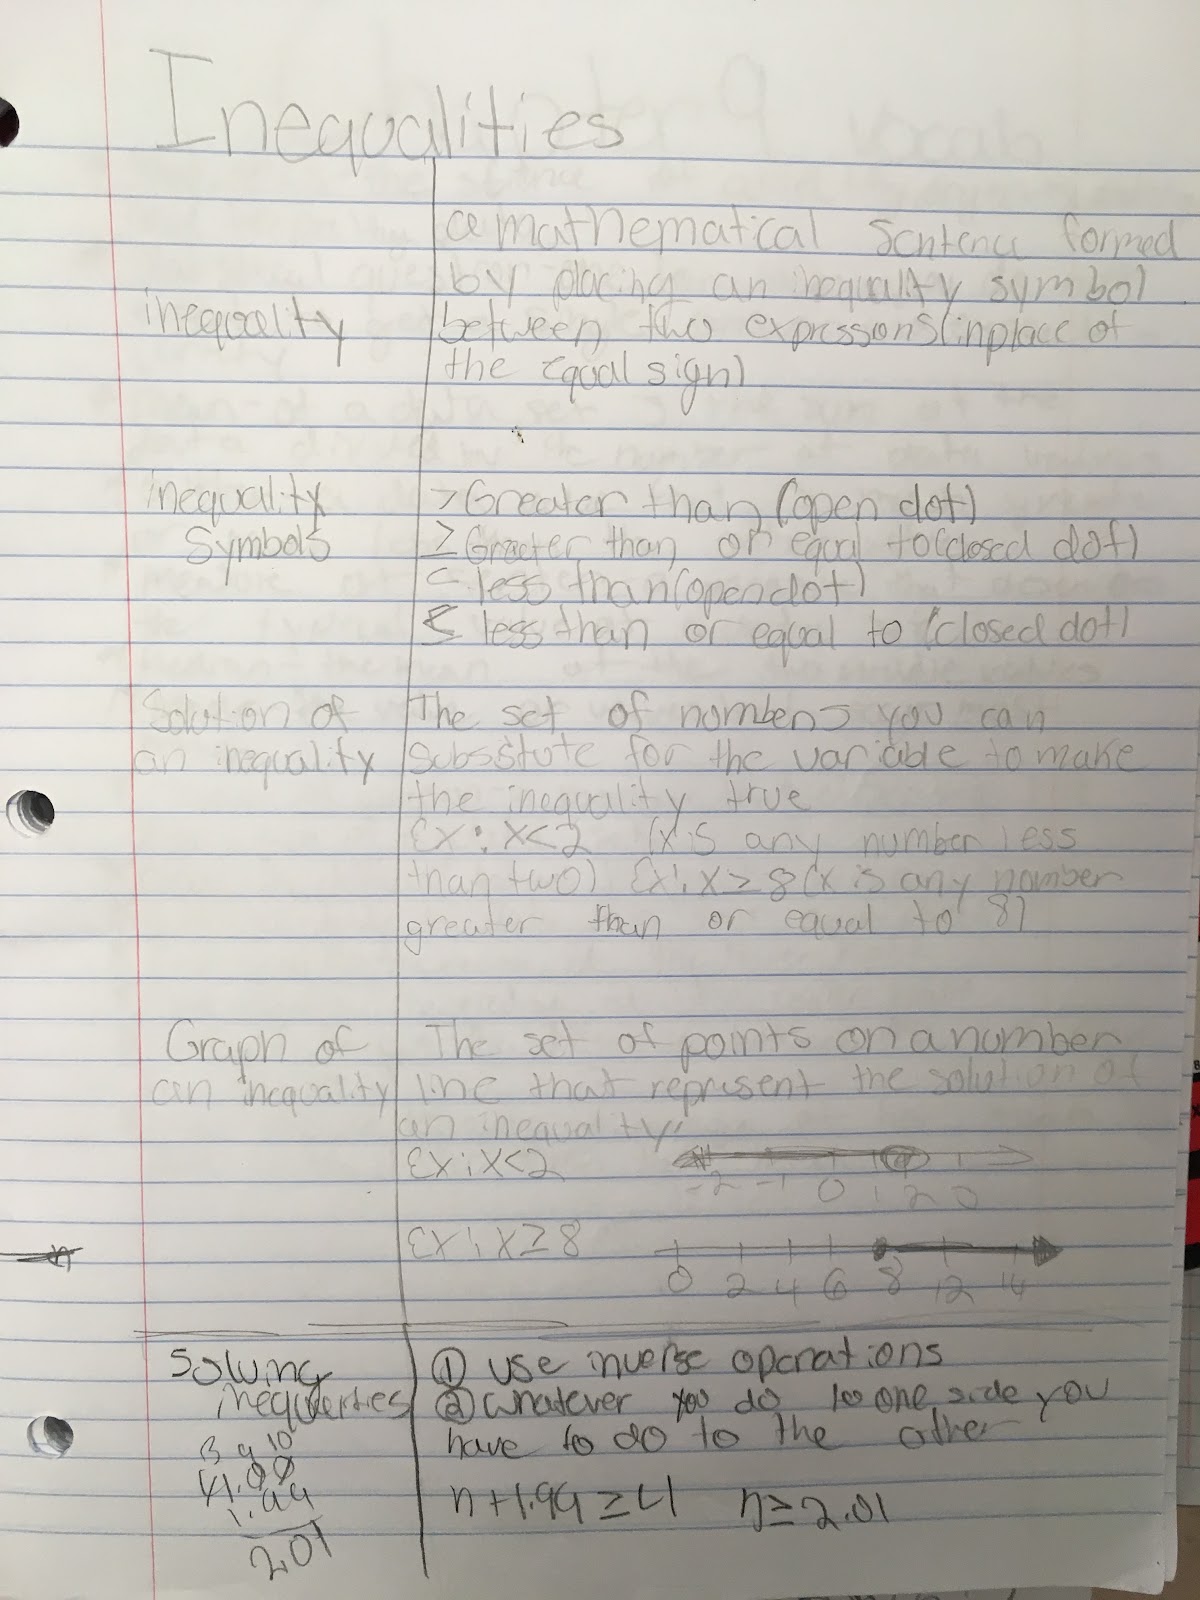 Inequalities
a mathematical Sentence formed
by placing an inequality symbol
inequality
between two expressions (in place of
the equal sign)
inequality
Symbols
> Greater than (open dot)
≥ Greater than or equal to (closed dot)
< less than (open dot)
≤ less than or equal to (closed dot)
Solution of
an inequality
The set of numbers you can
subsstute for the variable to make
the inequality true
Ex: x<2 (x is any number less
than two) Ex: x ≥ 8 (x is any number
greater than or equal to 8)
Graph of
an inequality
The set of points on a number
line that represent the solution of
an inequality
Ex: x<2
-2 -1 0 1 2 0
Ex: x≥8
0 2 4 6 8 12 14
Solving
inequalities
① use inverse operations
② whatever you do to one side you
have to do to the other
3 9 10
4.00
1.99
2.01
n+1.99 ≥ 4 n ≥ 2.01